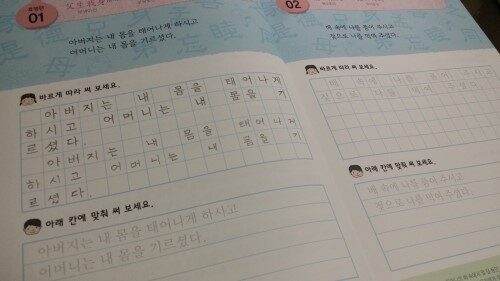 효행편
01
父生我身
아버지는 내 몸을 태어나게 하시고
어머니는 내 몸을 기르셨다.
바르게 따라 써 보세요.
아버지는 내 몸을 태어나게
하시고 어머니는 내 몸을 기
르셨다.
아버지는 내 몸을 태어나게
하시고 어머니는 내 몸을 기
르셨다.
아래 칸에 맞춰 써 보세요.
아버지는 내 몸을 태어나게 하시고
어머니는 내 몸을 기르셨다.
02
배 속에 나를 품어 주시고
젖으로 나를 먹여 주셨다.
바르게 따라 써 보세요.
배 속에 나를 품어 주시고
젖으로 나를 먹여 주셨다.
아래 칸에 맞춰 써 보세요.
배 속에 나를 품어 주시고
젖으로 나를 먹여 주셨다.